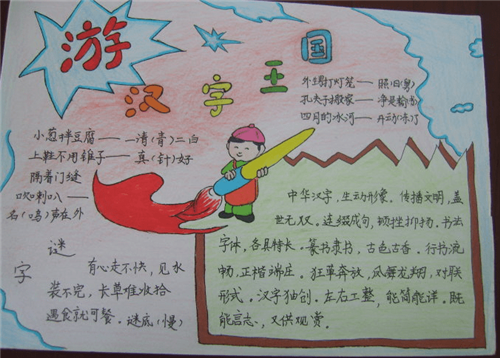 游
汉字王国
外甥打灯笼——照旧(舅)
孔夫子搬家——净是输(书)
四月的冰河——开动(冻)了
小葱拌豆腐——一清(青)二白
上鞋不用锥子——真(针)好
隔着门缝
吹喇叭——
名(鸣)声在外
谜
字
有心走不快,见水
装不完,长草难收拾
遇食就可餐.谜底(慢)
中华汉字,生动形象,传播文明,盖
世无双.连缀成句,顿挫抑扬.书法
字体,各具特长.篆书隶书,古色古香.行书流
畅,正楷端庄.狂草奔放,凤舞龙翔,对联
形式.汉字独创.左右工整,能简能详.既
能言志,又供观赏.